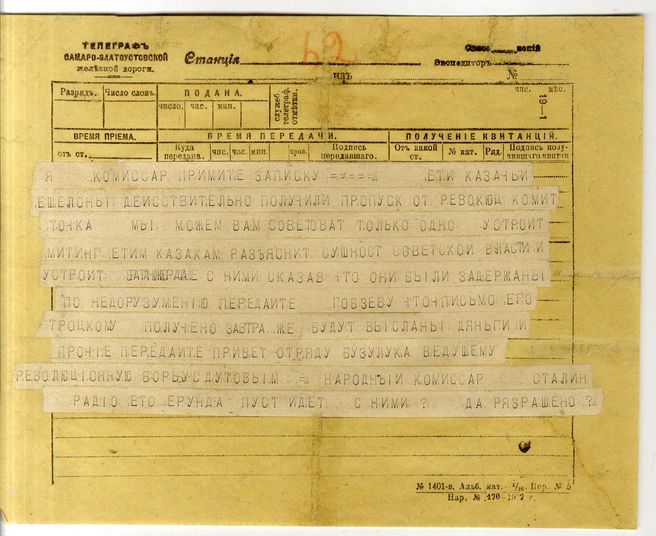 ТЕЛЕГРАФЪ
САМАРО-ЗЛАТОУСТОВСКОЙ
желѣзной дороги.
Станція
62
изъ
Экспедиторъ
№
Разрядъ.
Число словъ.
ПОДАНА.
число. час. мин.
служеб. телеграф. отмѣтки.
чис. мѣс.
19 -1
ВРЕМЯ ПРІЕМА.
ВРЕМЯ ПЕРЕДАЧИ.
ПОЛУЧЕНІЕ КВИТАНЦІЙ.
отъ ст.
Куда передана.
чис. час. мин.
пров.
Подпись передавшаго.
Отъ какой ст.
№ кат.
Ряд.
Подпись полу-
чившаго квитан
Я КОМИССАР ПРИМИТЕ ЗАПИСКУ ===== ЕТИ КАЗАЧЬИ
ЕШЕЛОНЫ ДЕИССТВИТЕЛЬНО ПОЛУЧИЛИ ПРОПУСК ОТ РЕВОКЮЦ КОМИТ
ТОЧКА МЫ МОЖЕМ ВАМ СОВЕТОВАТ ТОЛЬКО ОДНО УСТРОИТ
МИТИНГ ЕТИМ КАЗАКАМ РАЗЪЯСНИТ СУШНОСТ СОВЕТСКОЙ ВЛАСТИ И
УСТРОИТ С НИМИ СКАЗАВ ЧТО ОНИ БЫЛИ ЗАДЕРЖАНЫ
ПО НЕДОРУЗУМЕНИЮ ПЕРЕДАИТЕ ГОВЗЕВУ ЧТО ПИСЬМО ЕГО
ТРОЦКОМУ ПОЛУЧЕНО ЗАВТРА ЖЕ БУДУТ ВЫСЛАНЫ ДЯНЬГИ И
ПРОЧІЕ ПЕРЕДАИТЕ ПРИВЕТ ОТРЯДУ БУЗУЛУКА ВЕДУШЕМУ
РЕВОЛЮЦІОННУЮ БОРЬБУ С ДУТОВЫМ = НАРОДНЫИ КОМИССАР СТАЛИН
РАДІО ЕТО ЕРУНДА ПУСТ ИДЕТ С НИМИ ? ДА РЯЗРАШЕНО ?
№ 1401-в. Альб. кат. Пер. № 5
Нар. № 176-19 7 г.